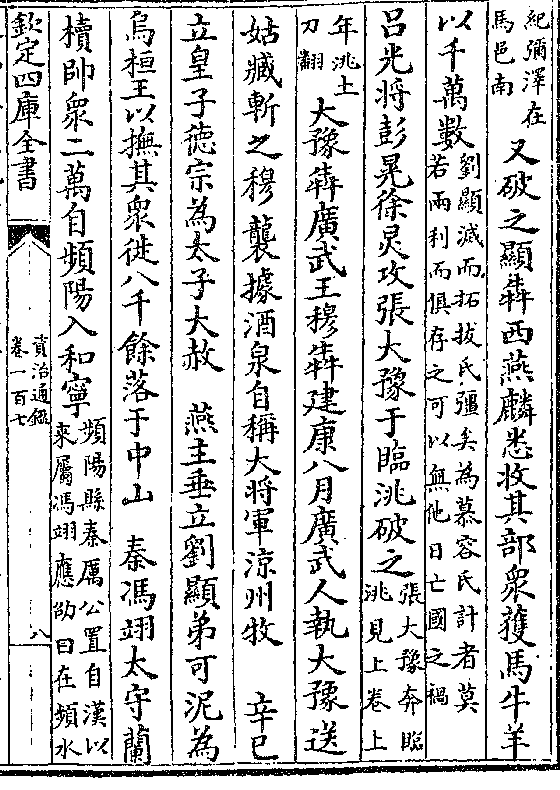 紀彌澤在
馬邑南
又破之顯犇西燕麟悉收其部衆獲馬牛羊
以千萬數
劉顯滅而拓拔氏彊矣為慕容氏計者莫
若兩利而俱存之可以無他日亡國之禍
吕光將彭晃徐炅攻張大豫于臨洮破之
張大豫奔臨
洮見上卷上
年洮土
刀翻
大豫犇廣武王穆犇建康八月廣武人執大豫送
姑臧斬之穆襲據酒泉自稱大將軍涼州牧 辛巳
立皇子德宗為太子大赦 燕主垂立劉顯弟可泥為
烏桓王以撫其衆徙八千餘落于中山 秦馮翊太守蘭
櫝帥衆二萬自頻陽入和寧
頻陽縣秦厲公置自漢以
來屬馮翊應劭曰在頻水
欽定四庫全書
資治通鑑
卷一百七
八